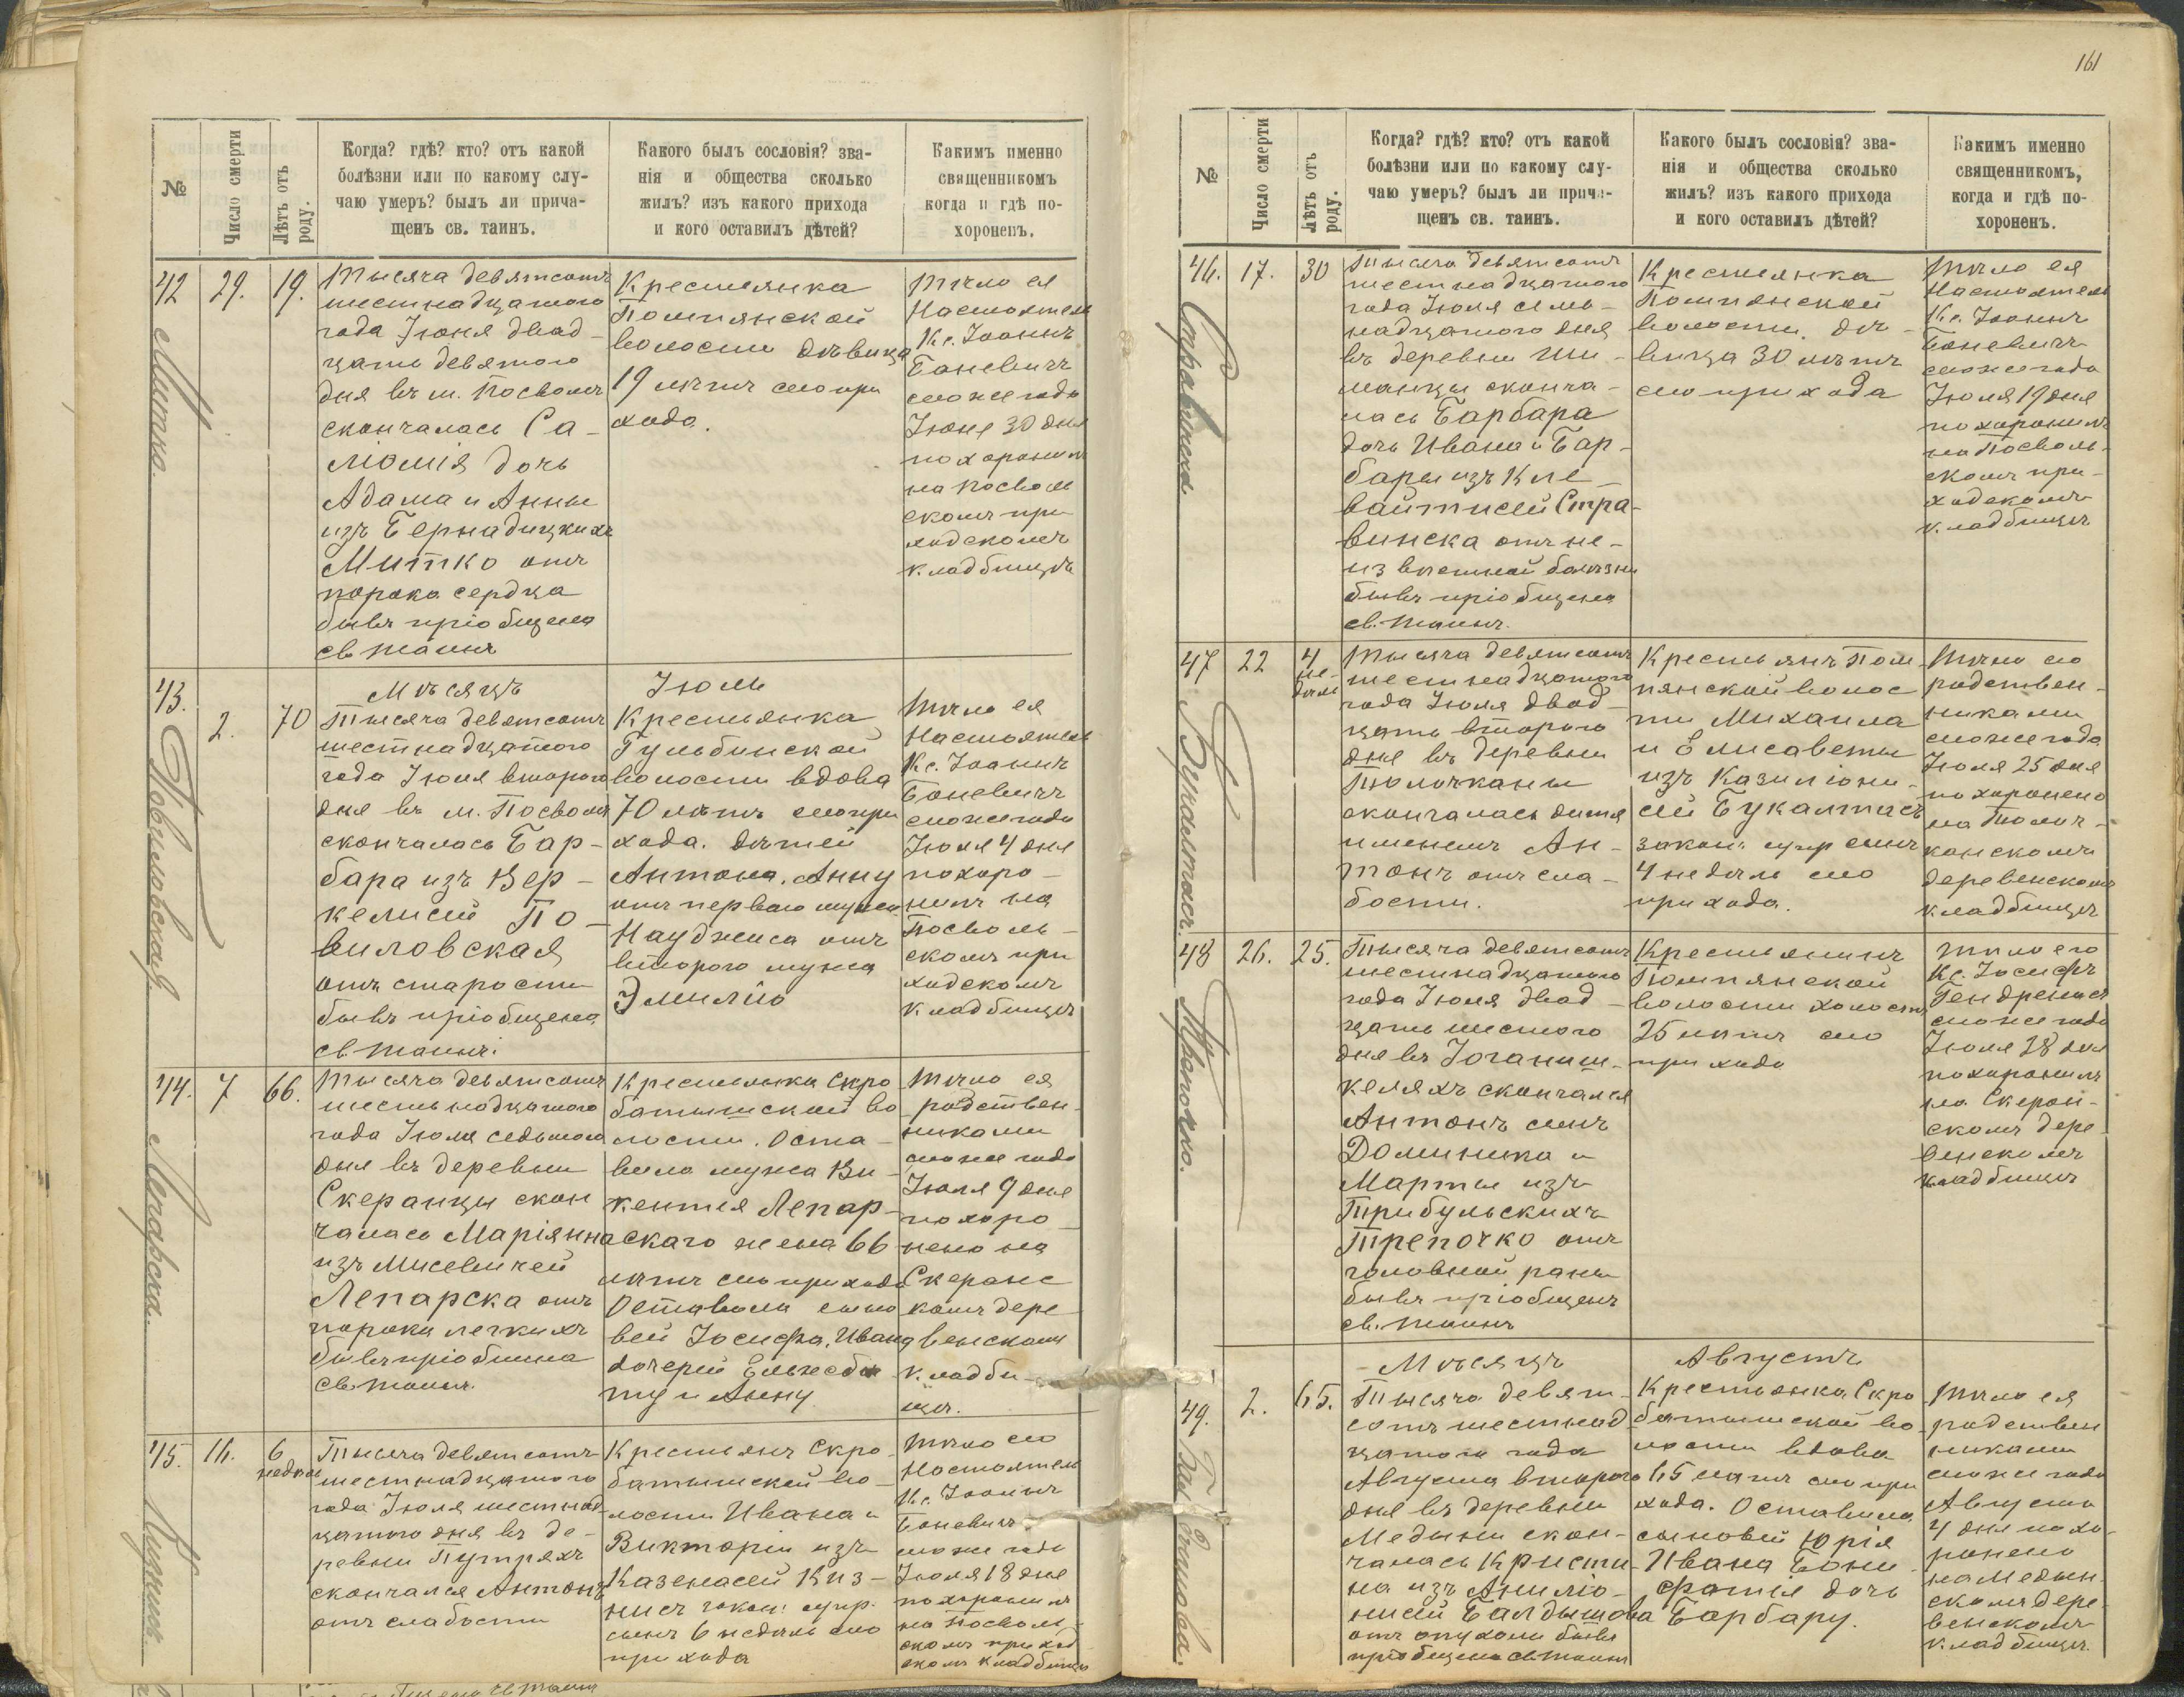 161
№
Число смерти
Лѣтъ отъ
роду.
Когда? гдѣ? кто? отъ какой
болѣзни или по какому слу-
чаю умеръ? былъ ли прича-
щенъ св. таинъ.
Какого былъ сословія? зва-
нія и общества сколько
жилъ? изъ какого прихода
и кого оставилъ дѣтей?
Какимъ именно
священникомъ
когда и гдѣ по-
хороненъ.
42
Митко.
29.
19.
Тысяча девятсотъ
шестнадцатого
года Іюня двад-
цать девятого
дня въ м. Посволъ
скончалась Са-
ломія дочь
Адама и Анны
изъ Бернадицкихъ
Митко отъ
порока сердца
бывъ пріобщена
св таинъ
Крестьянка
Помпянской
волости дѣвица
19 лѣтъ сего при
хода.
Тѣло ея
Настоятель
Кс. Іоаннъ
Боневичъ
сего же года
Іюня 30 дня
похоронилъ
на Посволь
скомъ при
ходскомъ
кладбищѣ
43.
Повиловская
2.
70
Мѣсяцъ
Тысяча девятсотъ
шестнадцатого
года Іюля второго
дня въ м. Посволѣ
скончалась Бар-
бара изъ Вер-
келисей По-
виловская
отъ старости
бывъ пріобщена
св. таинъ.
Іюль
Крестьянка
Гульбинской
волости вдова
70 лѣтъ сего при
хода. дѣтей
Антона, Анну
отъ перваго мужа
Науджиса отъ
второго мужа
Эмилію
Тѣло ея
Настоятель
Кс. Іоаннъ
Боневичъ
сего же года
Іюля 4 дня
похоро-
нилъ на
Посволь-
скомъ при
ходскомъ
кладбищѣ
44.
Лепарска.
7
66.
Тысяча девятсотъ
шестьнадцатого
года Іюля седьмого
дня въ деревни
Скеранцы скон
чалась Маріянна
изъ Мисевичей
Лепарска отъ
порока легкихъ
бывъ пріобщена
св. таинъ.
Крестьянка Скро
батышской во
лости. Оста-
вила мужа Ви-
кентія Лепар-
скаго жена 66
лѣтъ сего прихода
Оставила сыно
вей Іосифа, Ивана
дочерей Елжебѣ
ту и Анну
Тѣло ея
родствен-
никами
сего же года
Іюля 9 дня
похоро-
нено на
Скеранс
комъ дере
венскомъ
кладби-
щѣ.
45.
16.
6
недѣль
Тысяча девятсотъ
шестнадцатого
года Іюля шестнад
цатого дня въ де-
ревни Путряхъ
скончался Антонъ
отъ слабости
Крестьянъ Скро
батышской во-
лости Ивана и
Викторіи изъ
Казенасей Киз-
нисъ закон: супр.
сынъ 6 недѣль сего
прихода
Тѣло его
Настоятель
Кс. Іоаннъ
Боневичъ
сего же года
Іюля 18 дня
похоронилъ
на Посволь
скомъ приход
скомъ кладбищѣ
№
Число смерти
Лѣтъ отъ
роду.
Когда? гдѣ? кто? отъ какой
болѣзни или по какому слу-
чаю умеръ? былъ ли прича-
щенъ св. таинъ.
Какого былъ сословія? зва-
нія и общества сколько
жилъ? изъ какого прихода
и кого оставилъ дѣтей?
Какимъ именно
священникомъ,
когда и гдѣ по-
хороненъ.
46.
Стравинска
17.
30
Тысяча девятсотъ
шестнадцатого
года Іюля семь-
надцатого дня
въ деревни Ши-
манцы сконча-
лась Барбара
дочь Ивана и Бар-
бары изъ Кле-
вайтисей Стра-
винска отъ не-
извѣстной болѣзни
бывъ пріобщена
св. таинъ.
Крестьянка
Помпянской
волости дѣ-
вица 30 лѣтъ
сего прихода
Тѣло ея
Настоятель
Кс. Іоаннъ
Боневичъ
сего же года
Іюля 19 дня
похоронилъ
на Посволь-
скомъ при-
ходскомъ
кладбищѣ
47
22
4
не-
дѣли
Тысяча девятсотъ
шестнадцатого
года Іюля двад-
цать второго
дня въ деревни
Толочканы
скончалась дитя
именемъ Ан-
тонъ отъ сла-
бости.
Крестьянъ Пом
пянской волос
ти Михаила
и Елисаветы
изъ Казиліони-
сей Букалтасъ
закон. супр сынъ
4 недѣли сего
прихода.
Тѣло его
родствен-
никами
сего же года
Іюля 25 дня
похоронено
на Толоч-
канскомъ
деревенскомъ
кладбищѣ
48
Трепочко.
26.
25.
Тысяча девятсотъ
шестнадцатого
года Іюля двад-
цать шестого
дня въ Іоганиш-
келяхъ скончался
Антонъ сынъ
Доминика и
Марты изъ
Трибульскихъ
Трепочко отъ
головной раны
бывъ пріобщенъ
св. таинъ
Крестьянинъ
Помпянской
волости холостъ
25 лѣтъ сего
прихода
Тѣло его
Кс. Іосифъ
Гендренасъ
сего же года
Іюля 28 дня
похоронилъ
на Скеран-
скомъ дере
венскомъ
кладбищѣ
49.
Балдышова.
2.
65.
Мѣсяцъ
Тысяча девят-
сотъ шестнад
цатого года
Августа второго
дня въ деревни
Медыни скон-
чалась Кристи
на изъ Анилiо-
нисей Балдышова
отъ опухоли бывъ
пріобщена св таинъ
Августъ
Крестьянка Скро
батышской во
лости вдова
65 лѣтъ сего при
хода. Оставила
сыновей Юрія
Ивана Бони-
фатія дочь
Барбару.
Тѣло ея
родствен
никами
сего же года
Августа
4 дня похо-
ронено
на Медын-
скомъ дере
венскомъ
кладбищѣ.